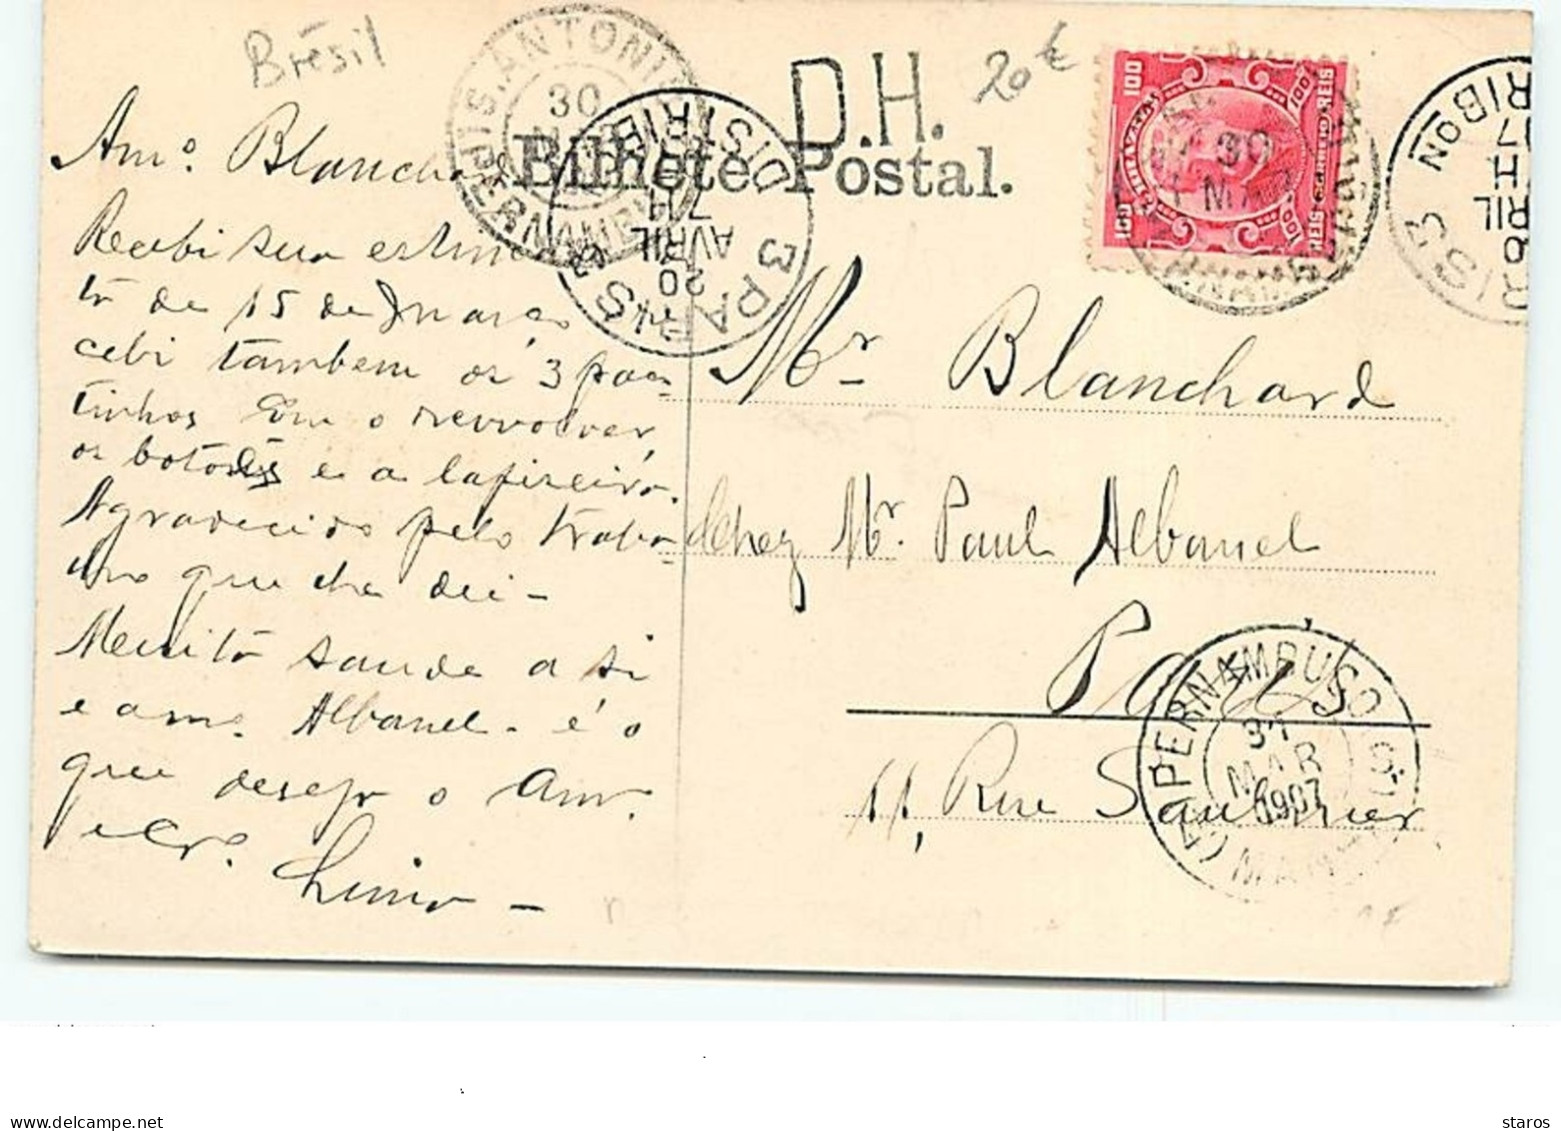 Brésil
D.H.
20 €
Bilhete Postal.
S. ANTONIO
30
PERNAMBUCO
PARIS
DISTRIB
7 H
AVRIL
20
3
100
100 REIS
30
MAR
RIBON
3
Amo. Blanchard
Recebi sua estima
ta de 15 de Março
cebi tambem os 3 paco
tinhos com o revvolver,
os botões e a lapizeira.
Agradecido pelo traba
lho que lhe dei -
Muita saude a si
e amo. Albanel - é o
que deseja o Amo.
e Cro.
Lima -
Mr. Blanchard
Chez Mr. Paul Albanel
Paris
11, Rue Saulnier
PERNAMBUCO
31
MAR
1907
MANHÃ
postcardman.net
staros